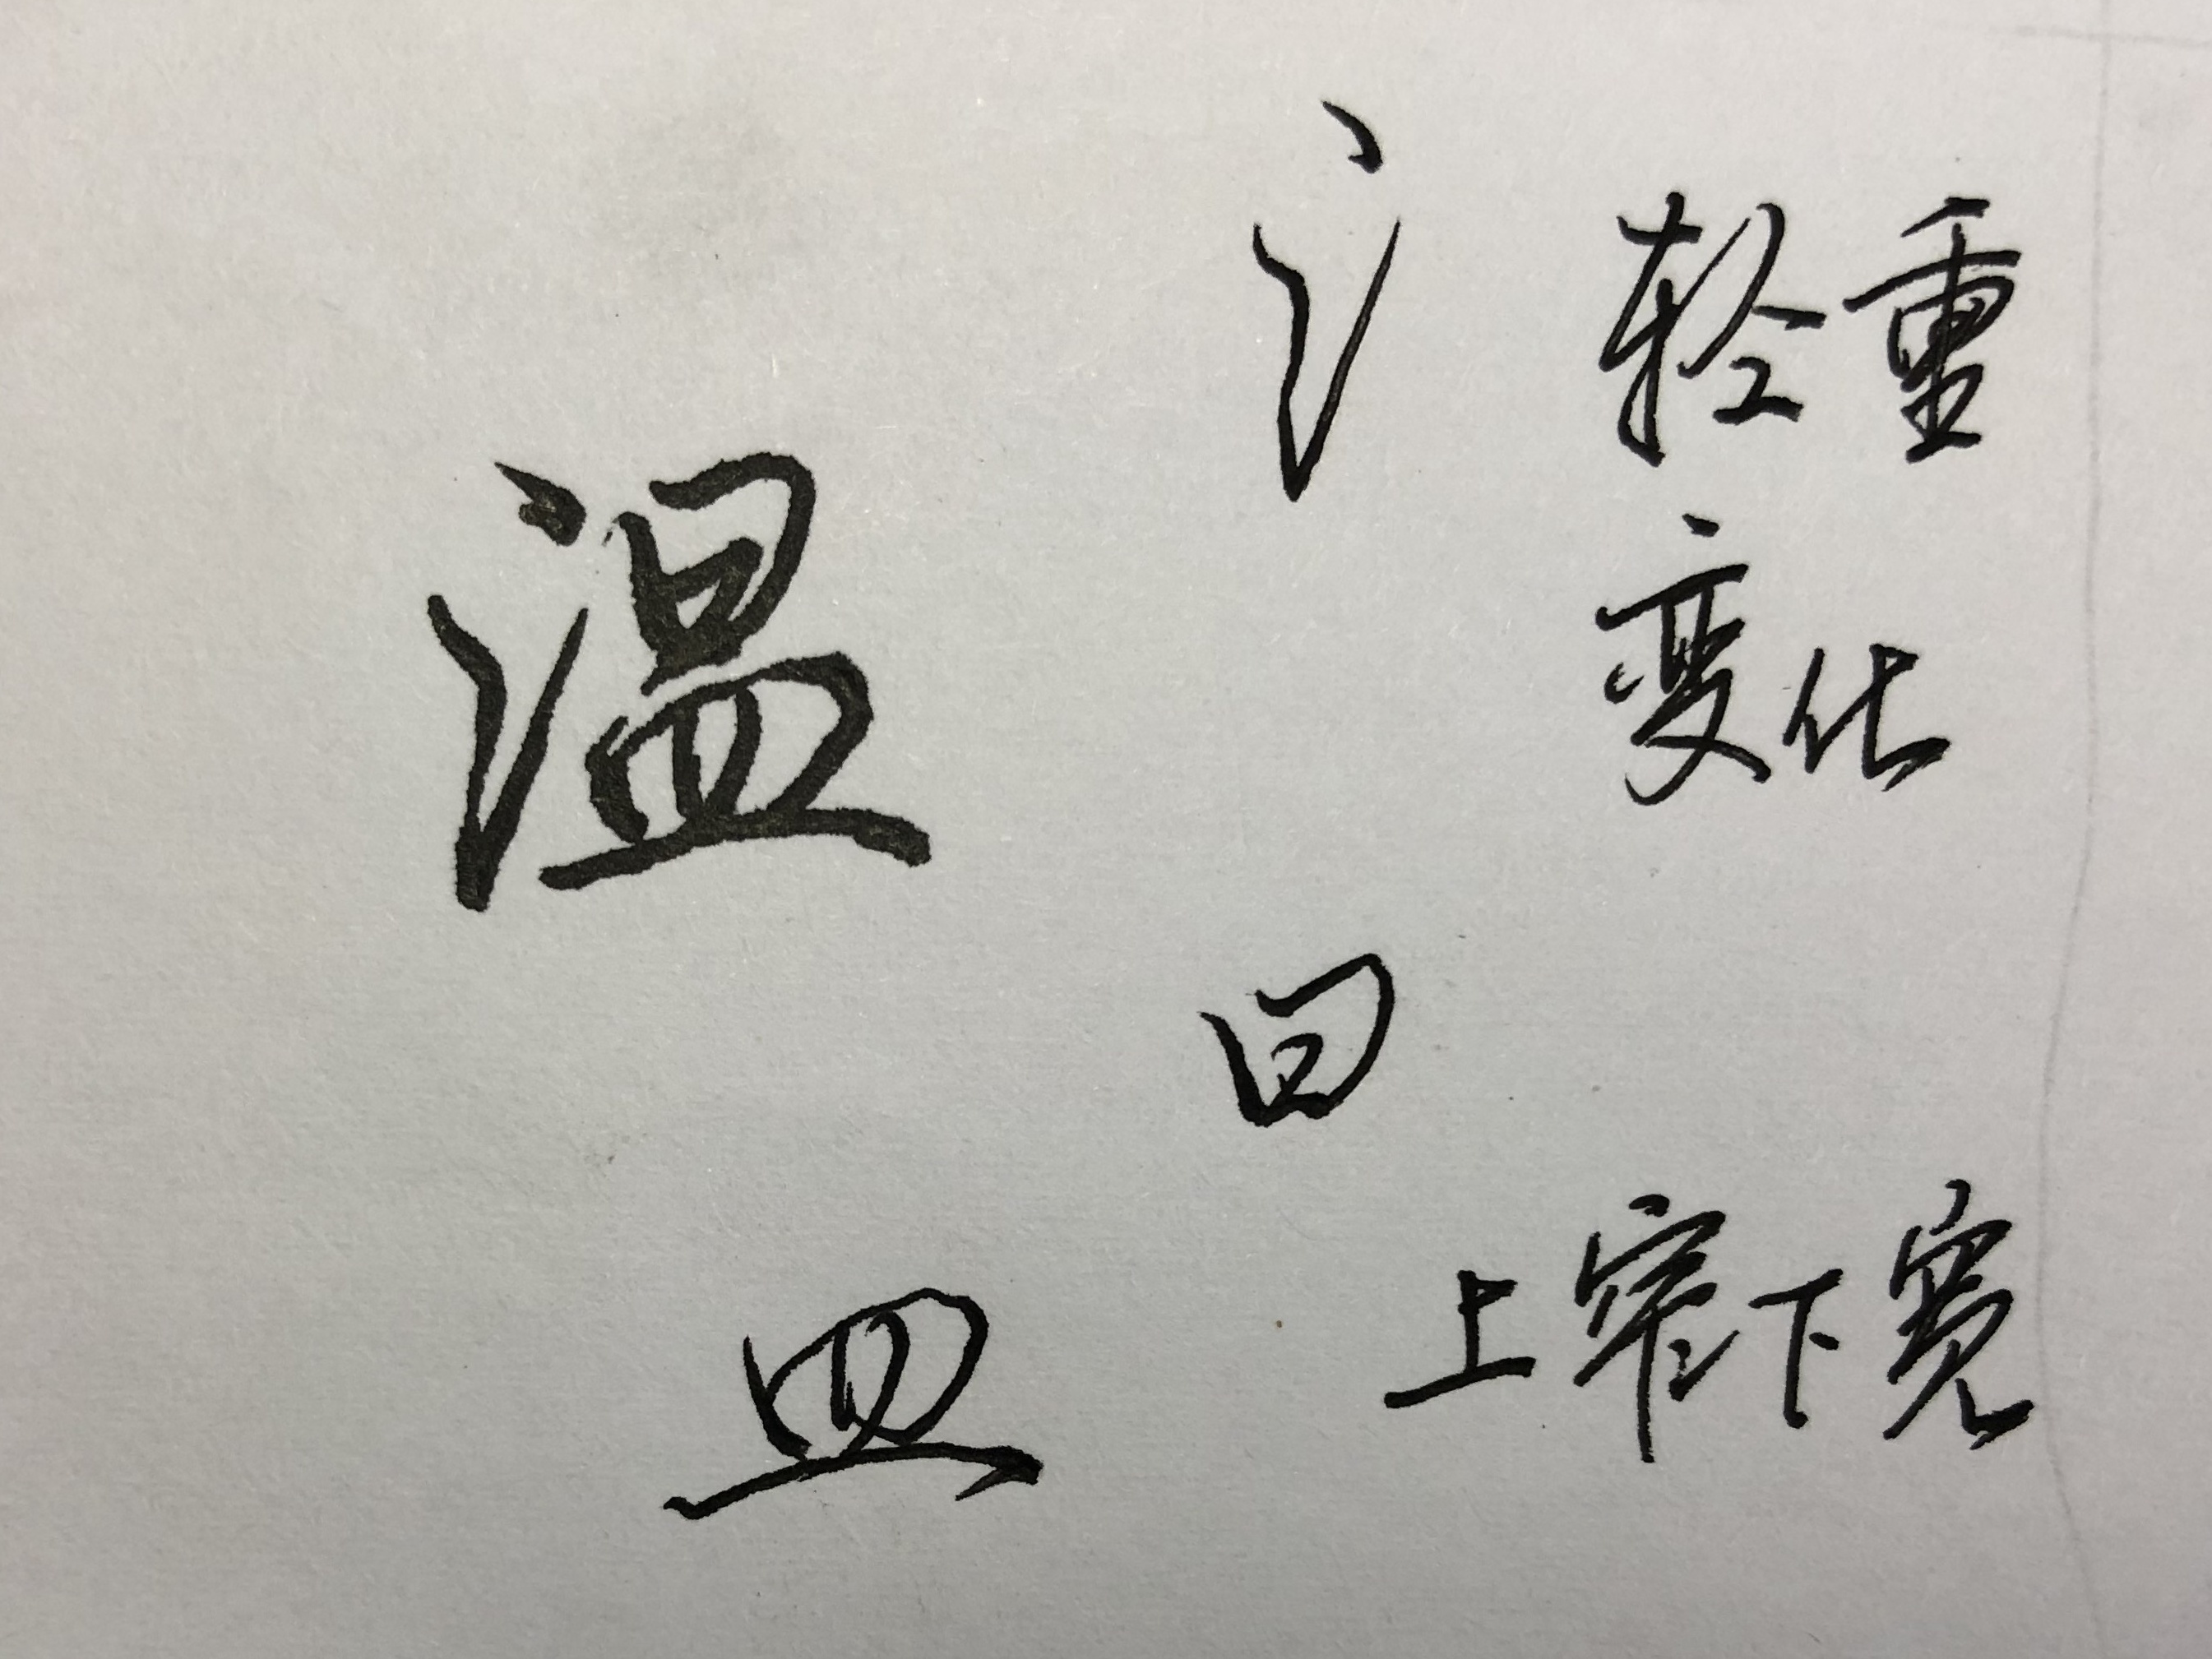 温
氵
轻重
变化
日
上窄下宽
皿